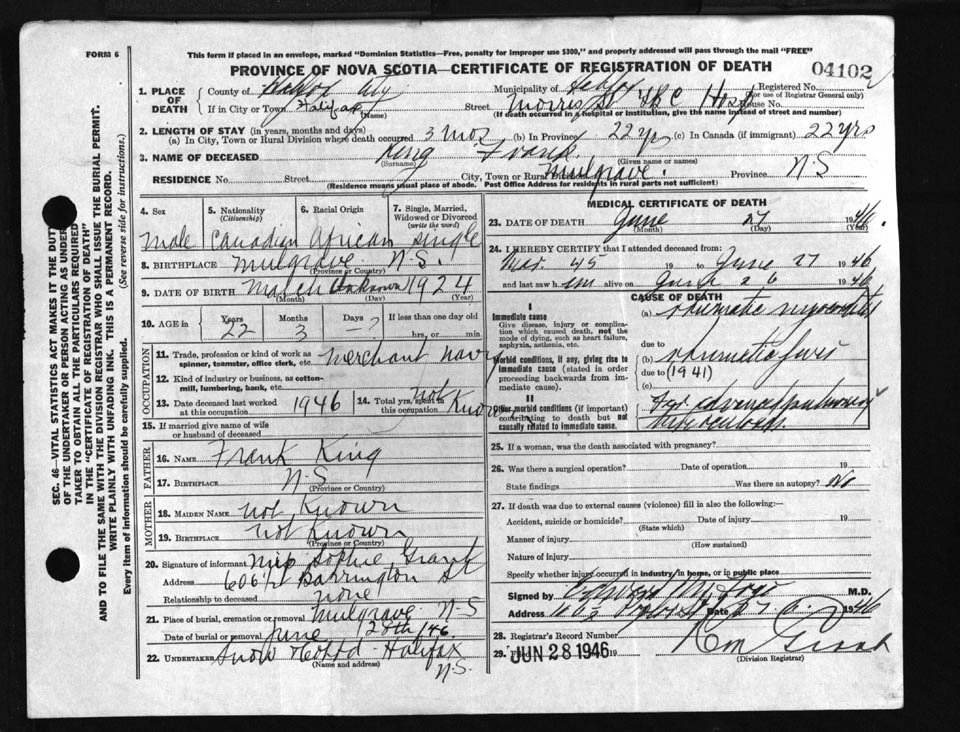 FORM 6
This form if placed in an envelope, marked "Dominion Statistics—Free, penalty for improper use $300," and properly addressed will pass through the mail "FREE"
PROVINCE OF NOVA SCOTIA—CERTIFICATE OF REGISTRATION OF DEATH
04102
1. PLACE OF DEATH County of Municipality of Registered No.
(For use of Registrar General only)
If in City or Town Halifax (Name) Street Morris St Hosp House No.
(If death occurred in a hospital or institution, give the name instead of street and number)
2. LENGTH OF STAY (in years, months and days)
(a) In City, Town or Rural Division where death occurred 3 mos (b) In Province 22 yrs (c) In Canada (if immigrant) 22 yrs
3. NAME OF DECEASED King Frank
(Surname) (Given name or names)
RESIDENCE No. Street City, Town or Rural Mulgrave. Province N S
(Residence means usual place of abode. Post Office Address for residents in rural parts not sufficient)
4. Sex
5. Nationality (Citizenship)
6. Racial Origin
7. Single, Married, Widowed or Divorced (write the word)
Male Canadian African single
8. BIRTHPLACE Mulgrave N.S.
(Province or Country)
9. DATE OF BIRTH March Unknown 1924
(Month) (Day) (Year)
10. AGE in Years Months Days If less than one day old
22 3 —? hrs. or min.
OCCUPATION
11. Trade, profession or kind of work as spinner, teamster, office clerk, etc. Merchant navy
12. Kind of industry or business, as cotton-mill, lumbering, bank, etc.
13. Date deceased last worked at this occupation 1946
14. Total yrs. spent in this occupation not Known
15. If married give name of wife or husband of deceased
FATHER
16. Name Frank King
17. Birthplace N S
(Province or Country)
MOTHER
18. Maiden Name not Known
19. Birthplace not Known
(Province or Country)
20. Signature of informant Sophie Grant
Address Barrington St
Relationship to deceased none
21. Place of burial, cremation or removal Mulgrave N-S
Date of burial or removal June 28th/46.
22. UNDERTAKER Snow Halifax
(Name and address) N.S.
MEDICAL CERTIFICATE OF DEATH
23. DATE OF DEATH June 27 1946.
(Month) (Day) (Year)
24. I HEREBY CERTIFY that I attended deceased from:
Mar. 45 19 to June 27 1946
and last saw him alive on June 26 1946
CAUSE OF DEATH
I
Immediate cause
Give disease, injury or complication which caused death, not the mode of dying, such as heart failure, asphyxia, asthenia, etc.
(a) rheumatic myocarditis
due to
Morbid conditions, if any, giving rise to immediate cause (stated in order proceeding backwards from immediate cause).
(b) rheumatic fever
due to (1941)
(c)
II
Other morbid conditions (if important) contributing to death but not causally related to immediate cause.
Far advanced pulmonary tuberculosis.
25. If a woman, was the death associated with pregnancy?
26. Was there a surgical operation? Date of operation 19
State findings Was there an autopsy? No
27. If death was due to external causes (violence) fill in also the following:
Accident, suicide or homicide? Date of injury 19
(State which)
Manner of injury
(How sustained)
Nature of injury
Specify whether injury occurred in industry/in home, or in public place
Signed by M.D.
Address Date 27 6 1946
28. Registrar's Record Number
29. Filed JUN 28 1946 19
(Division Registrar)
SEC. 46—VITAL STATISTICS ACT MAKES IT THE DUTY
OF THE UNDERTAKER OR PERSON ACTING AS UNDERTAKER TO OBTAIN ALL THE PARTICULARS REQUIRED
IN THE "CERTIFICATE OF REGISTRATION OF DEATH"
AND TO FILE THE SAME WITH THE DIVISION REGISTRAR WHO SHALL ISSUE THE BURIAL PERMIT.
WRITE PLAINLY WITH UNFADING INK. THIS IS A PERMANENT RECORD.
Every item of information should be carefully supplied. (See reverse side for instructions.)